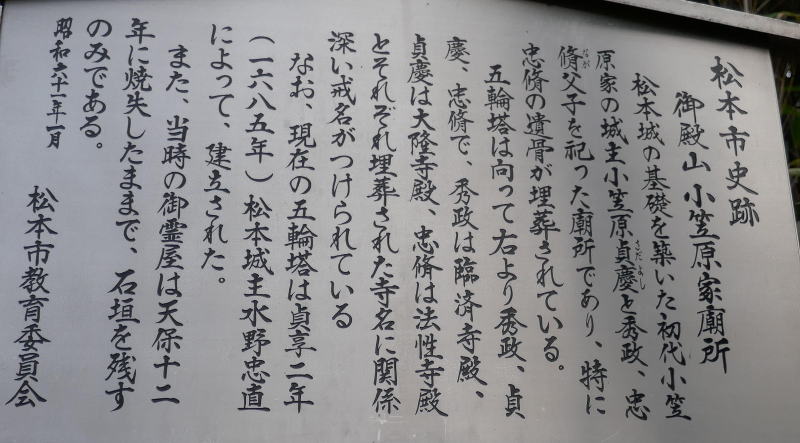 松本市史跡
御殿山 小笠原家廟所
松本城の基礎を築いた初代小笠
原家の城主小笠原貞慶と秀政、忠
脩父子を祀った廟所であり、特に
忠脩の遺骨が埋葬されている。
五輪塔は向って右より秀政、貞
慶、忠脩で、秀政は臨済寺殿、
貞慶は大隆寺殿、忠脩は法性寺殿
とそれぞれ埋葬された寺名に関係
深い戒名がつけられている
なお、現在の五輪塔は貞享二年
(一六八五年)松本城主水野忠直
によって、建立された。
また、当時の御霊屋は天保十二
年に焼失したままで、石垣を残す
のみである。
昭和六十一年一月
松本市教育委員会